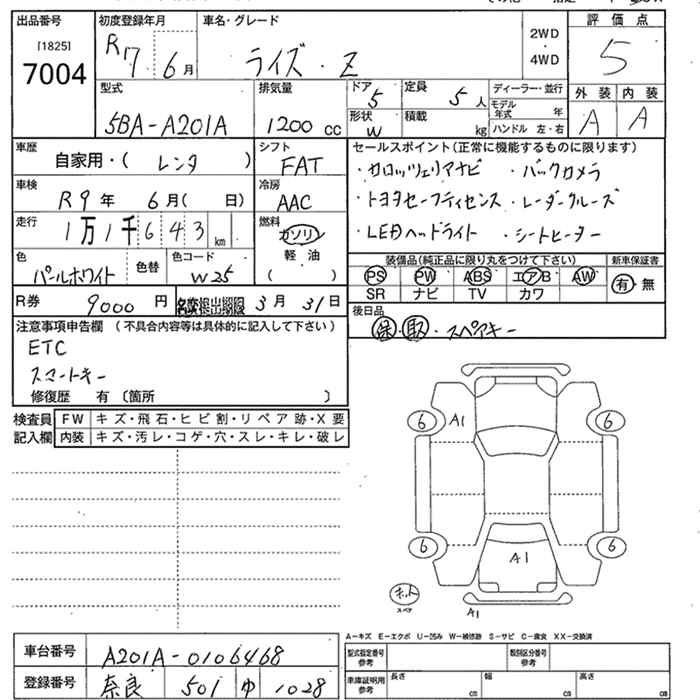 出品番号
[1825]
7004
初度登録年月
R7 6月
車名・グレード
ライズ・Z
2WD
・
4WD
評価点
5
型式
5BA-A201A
排気量
1200 cc
ドア
5
形状
W
定員
5人
積載
kg
ディーラー・並行
モデル年式 年
ハンドル 左・右
外装 内装
A A
車歴
自家用・( レンタ )
シフト
FAT
車検
R9年 6月( 日)
冷房
AAC
走行
1万1千643km
燃料
ガソリン
軽油
( )
色
パールホワイト
色替
色コード
W25
R券
9000円
3月31日
セールスポイント(正常に機能するものに限ります)
・カロッツェリアナビ ・バックカメラ
・トヨタセーフティセンス ・レーダークルーズ
・LEDヘッドライト ・シートヒーター
装備品(純正品に限り丸をつけて下さい)
新車保証書
PS PW ABS エアB AW
SR ナビ TV カワ
有・無
後日品
保・取・スペアキー
注意事項申告欄 (不具合内容等は具体的に記入して下さい)
ETC
スマートキー
修復歴 有 〔箇所 〕
検査員
記入欄
FW キズ・飛石・ヒビ割・リペア跡・X要
内装 キズ・汚レ・コゲ・穴・スレ・キレ・破レ
6 A1 6
6 A1 6
スペア
A1
A-キズ E-エクボ U-凹み W-補修跡 S-サビ C-腐食 XX-交換済
車台番号
A201A-0106468
登録番号
奈良 501 ゆ 1028
型式指定番号
参考
類別区分番号
参考
車庫証明用
参考
長さ cm
幅 cm
高さ cm